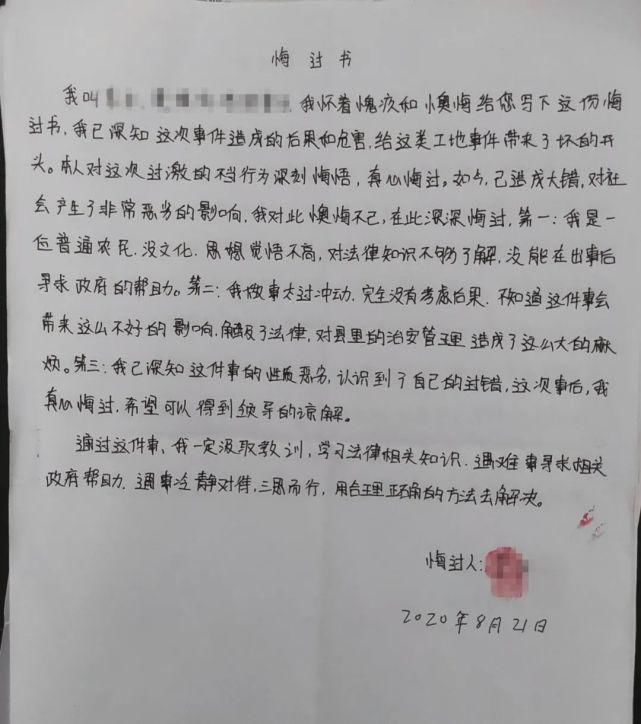 悔过书
我叫
我怀着愧疚和懊悔给您写下这份悔
过书,我已深知这次事件造成的后果和危害,给这类工地事件带来了坏的开
头。本人对这次过激的不当行为深刻悔悟,真心悔过。如今,已造成大错,对社
会产生了非常恶劣的影响,我对此懊悔不已,在此深深悔过,第一:我是一
位普通农民,没文化,思想觉悟不高,对法律知识不够了解,没能在出事后
寻求政府的帮助。第二:我做事太过冲动,完全没有考虑后果,不知道这件事会
带来这么不好的影响,触及了法律,对县里的治安管理造成了这么大的麻
烦。第三:我已深知这件事的性质恶劣,认识到了自己的过错,这次事后,我
真心悔过,希望可以得到领导的谅解。
通过这件事,我一定汲取教训,学习法律相关知识,遇难事寻求相关
政府帮助,遇事冷静对待,三思而行,用合理正确的方法去解决。
悔过人:
2020年8月21日